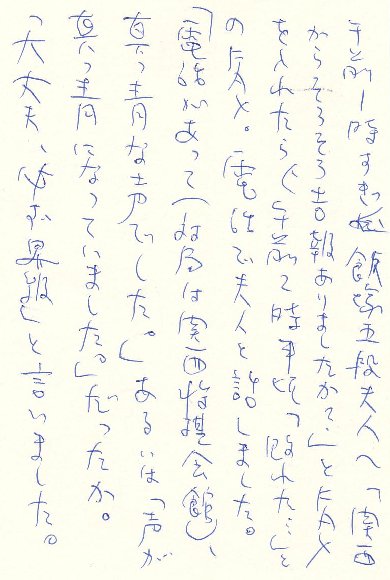 午前1時すぎ 飯塚五段夫人へ「関西
からそろそろ吉報ありましたか?」とFAX
を入れたら(午前2時半頃「敗れた…」と
のFAX。電話で夫人と話しました。
「電話があって(対局は関西将棋会館)、
真っ青な声でした。」あるいは「声が
真っ青になっていました。」だったか。
「大丈夫、必ず昇級」と言いました。